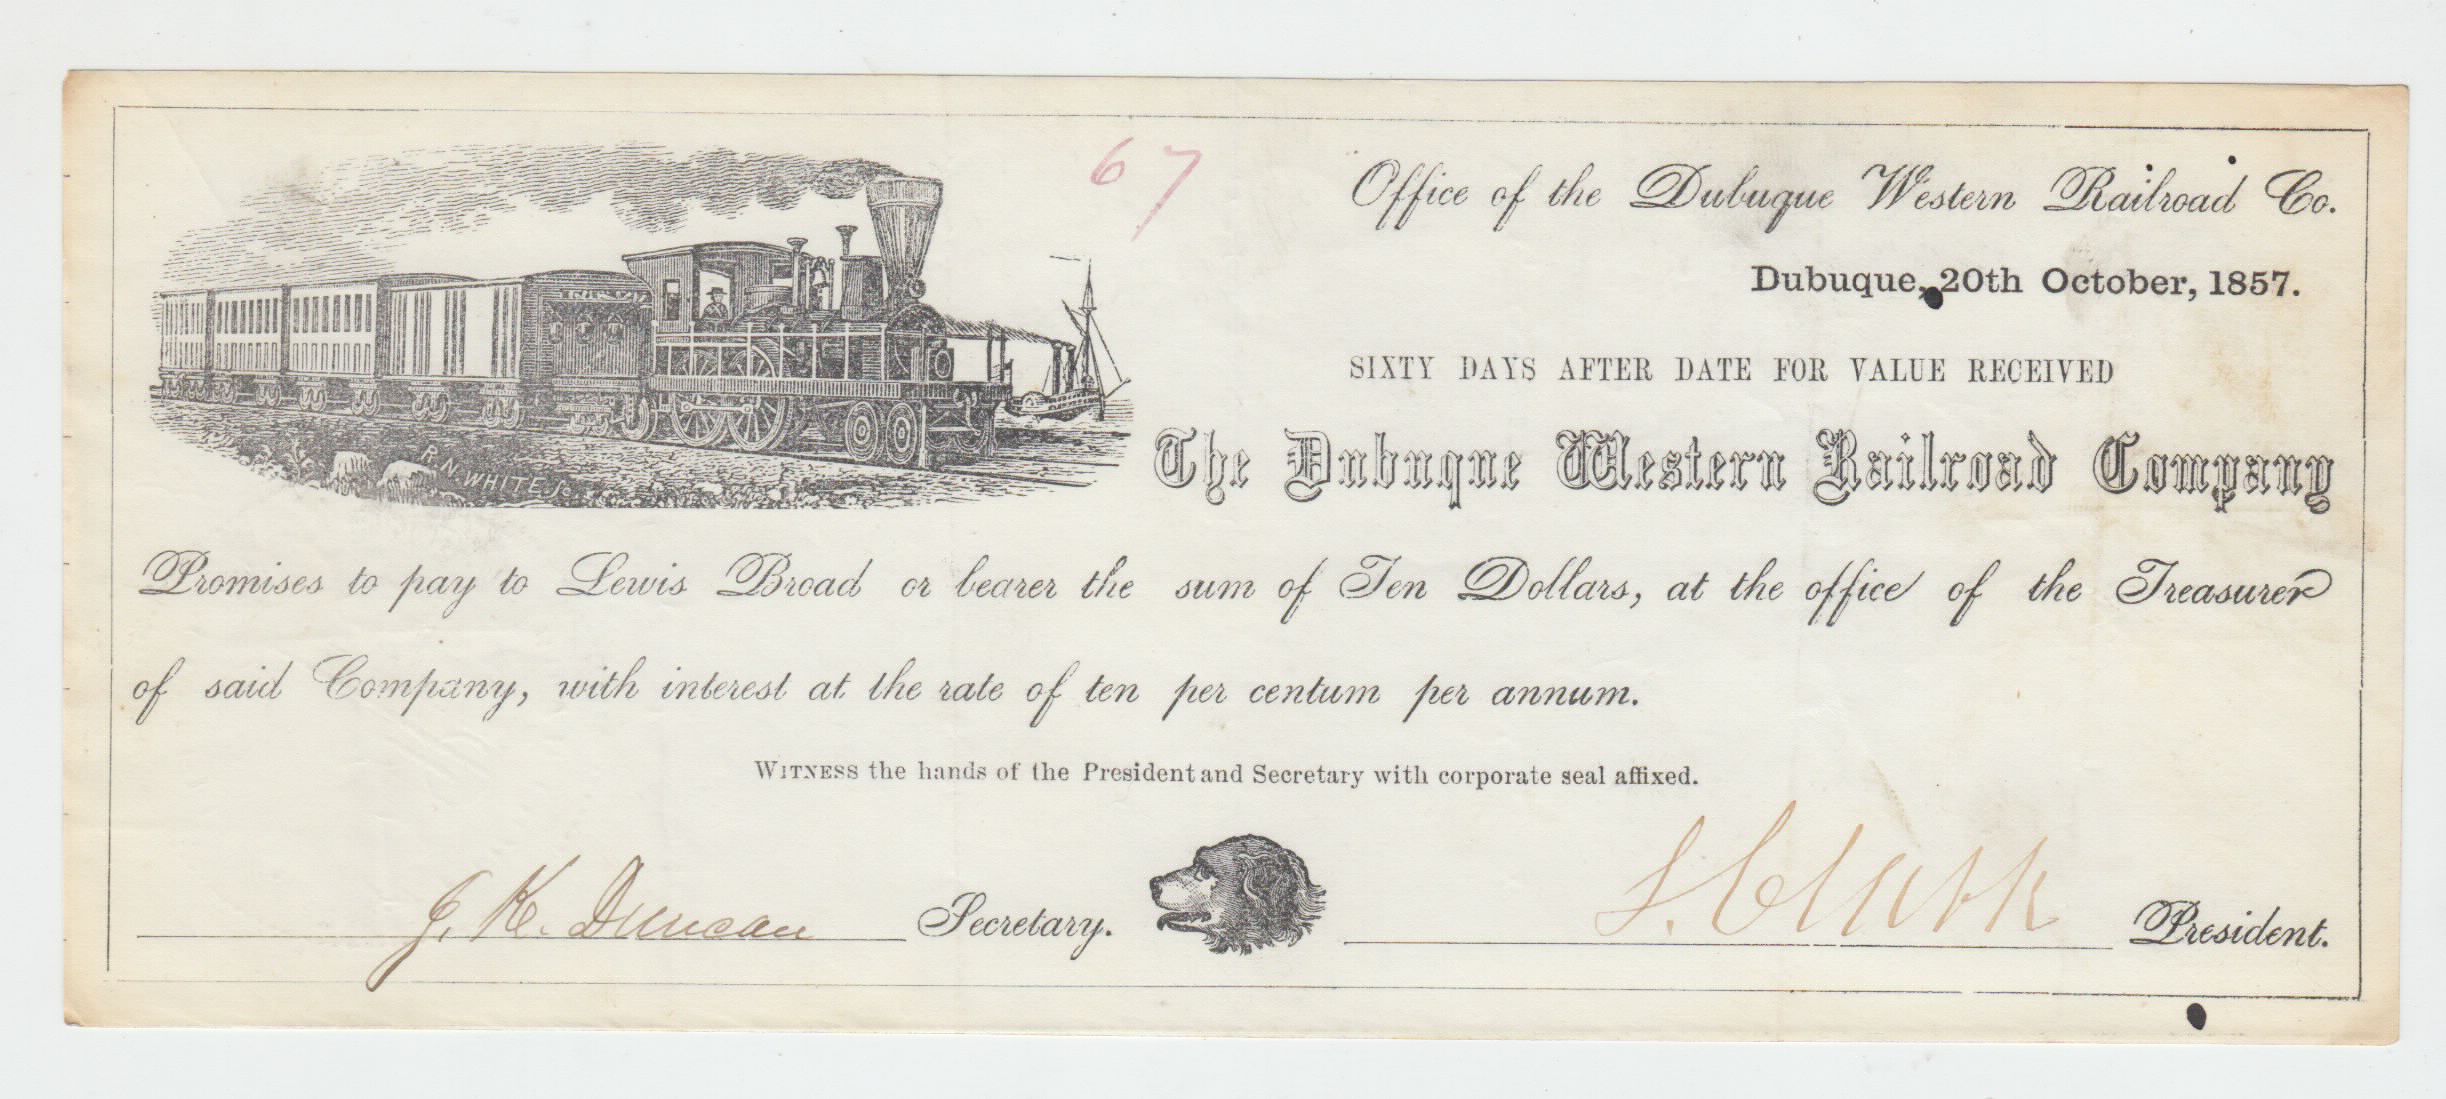 67
Office of the Dubuque Western Railroad Co.
Dubuque, 20th October, 1857.
SIXTY DAYS AFTER DATE FOR VALUE RECEIVED
The Dubuque Western Railroad Company
R.N. WHITE
Promises to pay to Lewis Broad or bearer the sum of Ten Dollars, at the office of the Treasurer
of said Company, with interest at the rate of ten per centum per annum.
WITNESS the hands of the President and Secretary with corporate seal affixed.
J. K. Duncan Secretary.
L. Clark President.